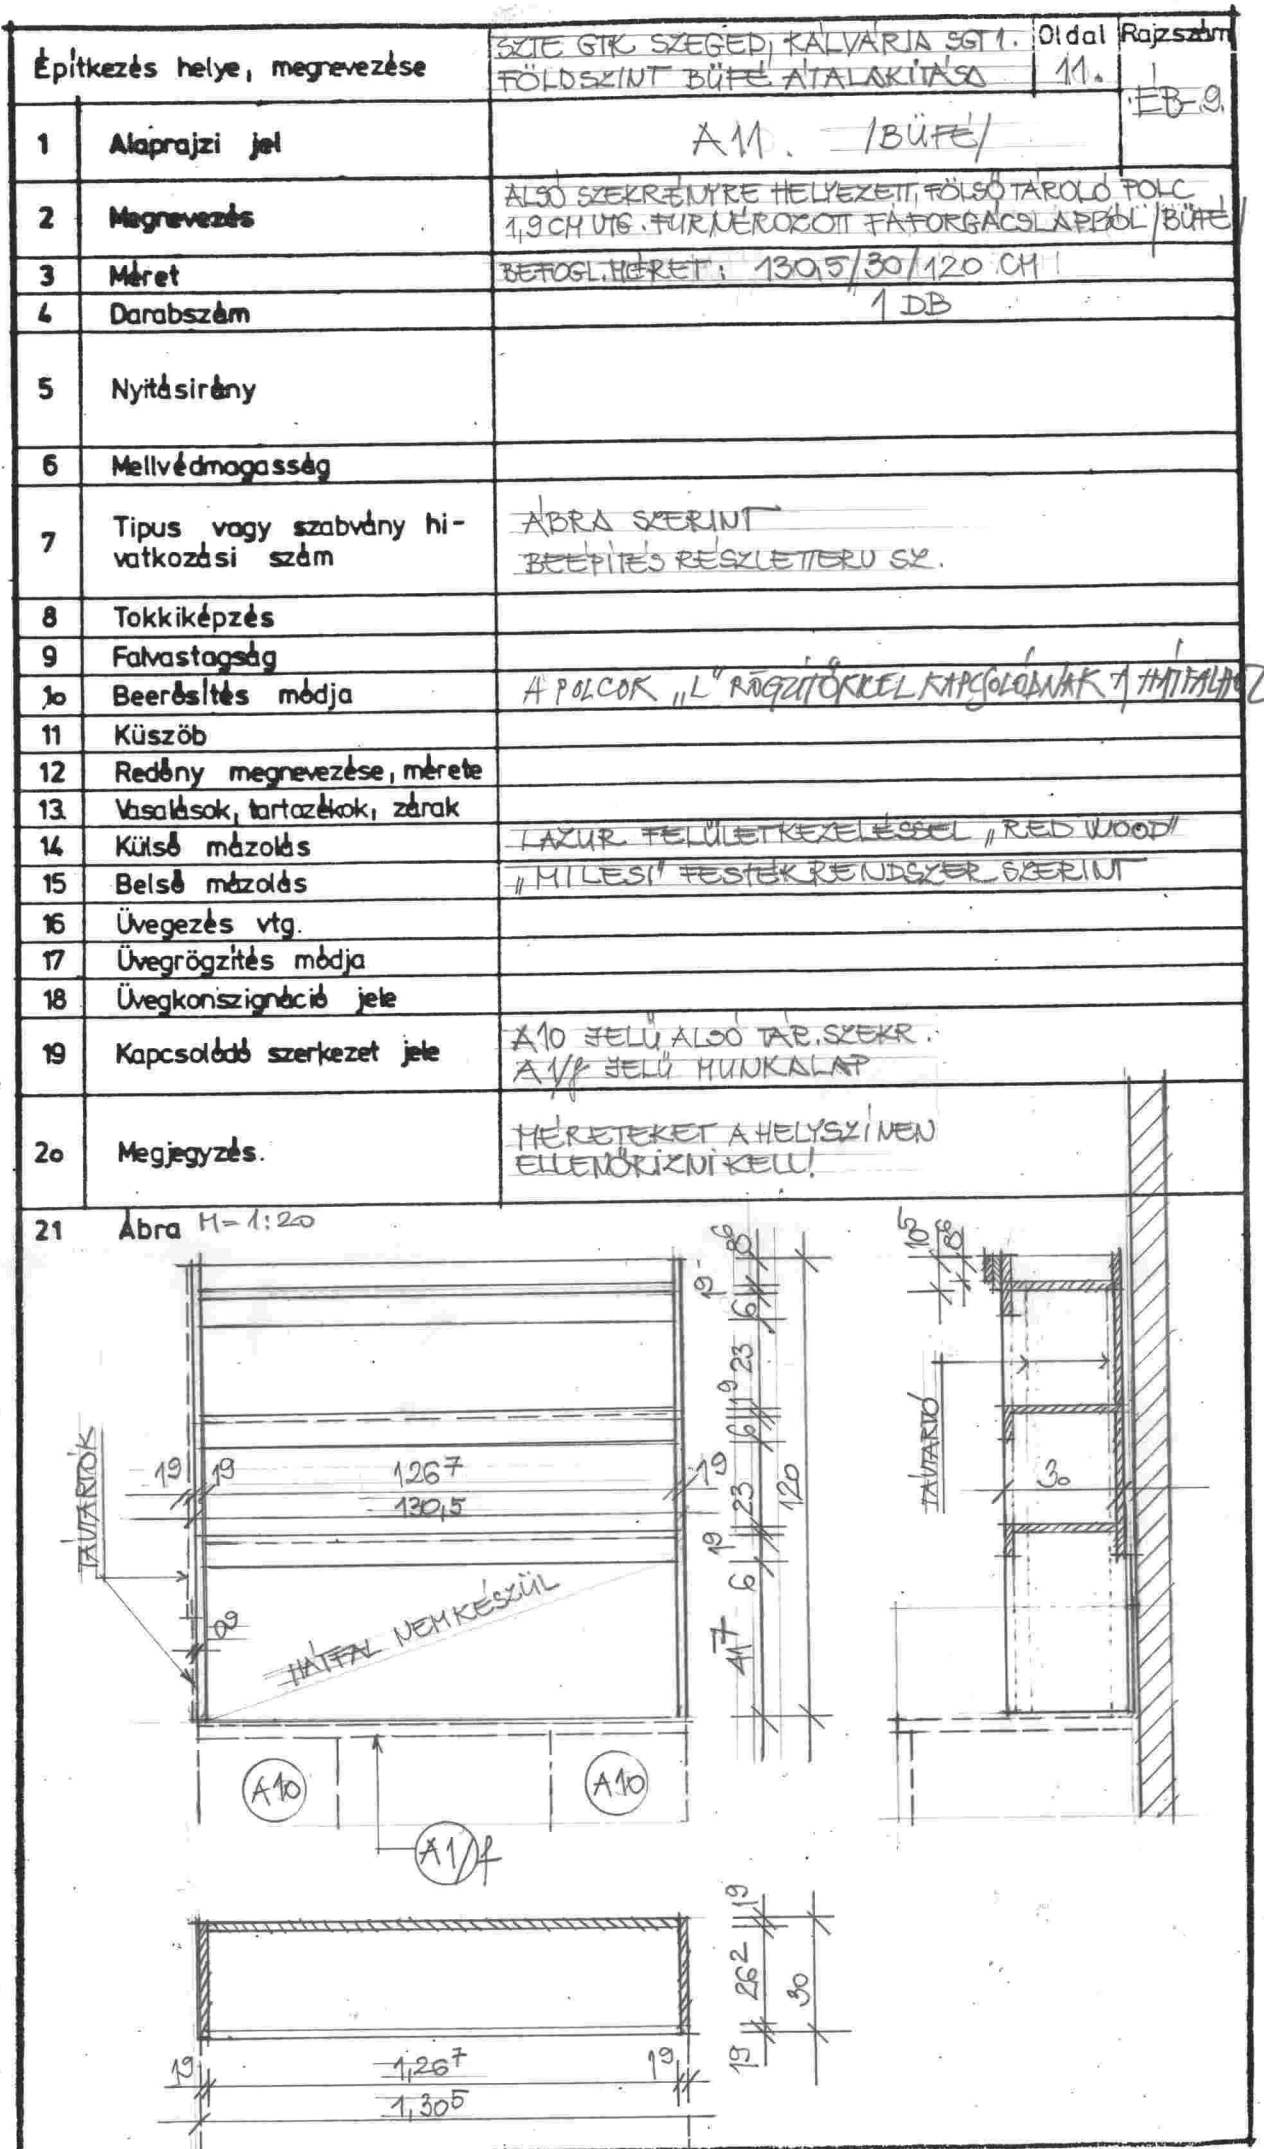 Építkezés helye, megnevezése
SZTE GTK SZEGED, KÁLVÁRIA SGT 1.
FÖLDSZINT BÜFÉ ÁTALAKÍTÁSA
Oldal
11.
Rajzszám
ÉB-9.
1 Alaprajzi jel A11. /BÜFÉ/
2 Megnevezés ALSÓ SZEKRÉNYRE HELYEZETT, FÖLSŐ TÁROLÓ POLC
1,9 CM VTG. FURNÉROZOTT FAFORGÁCSLAPBÓL /BÜFÉ/
3 Méret BEFOGL. MÉRET: 130,5/30/120 CM
4 Darabszám 1 DB
5 Nyitásirány
6 Mellvédmagasság
7 Tipus vagy szabvány hi-
vatkozási szám
ÁBRA SZERINT
BEÉPÍTÉS RÉSZLETTERV SZ.
8 Tokkiképzés
9 Falvastagság
10 Beerősítés módja A POLCOK „L" RÖGZÍTŐKKEL KAPCSOLÓDNAK A HÁTFALHOZ
11 Küszöb
12 Redőny megnevezése, mérete
13. Vasalások, tartozékok, zárak
14 Külső mázolás LAZUR FELÜLETKEZELÉSSEL „RED WOOD"
15 Belső mázolás „MILESI" FESTÉKRENDSZER SZERINT
16 Üvegezés vtg.
17 Üvegrögzítés módja
18 Üvegkonszignáció jele
19 Kapcsolódó szerkezet jele A10 JELŰ ALSÓ TÁR. SZEKR.
A1/f JELŰ MUNKALAP
20 Megjegyzés. MÉRETEKET A HELYSZÍNEN
ELLENŐRIZNI KELL!
21 Ábra M=1:20
TÁVTARTÓK
19 19 126⁷ 19
130,5
HÁTFAL NEM KÉSZÜL
8⁶
19
6
23
19
6
23
19
6
41⁷
120
10⁵ 8⁶
TÁVTARTÓ
30
A10 A10
A1/f
19
26²
19
30
19 1,26⁷ 19
1,30⁵